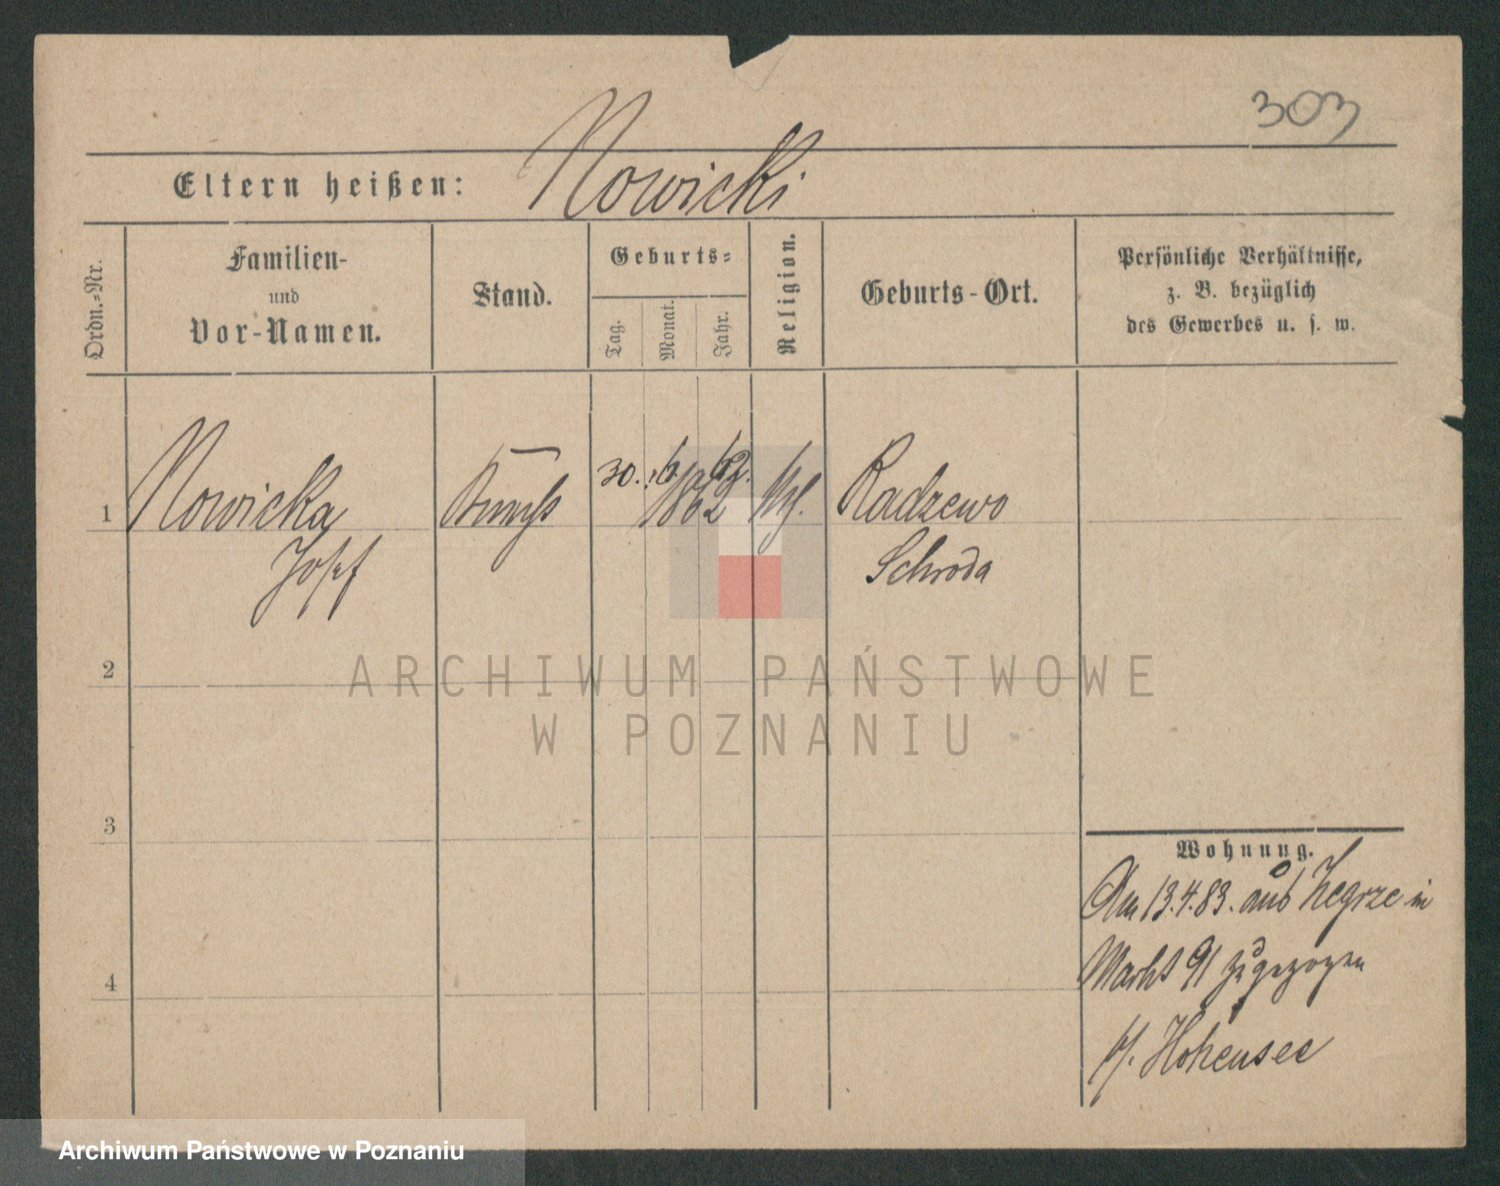 303
Eltern heißen: Nowicki
Ordn.-Nr.
Familien-
und
Vor-Namen.
Stand.
Geburts-
Tag.
Monat.
Jahr.
Religion.
Geburts-Ort.
Persönliche Verhältnisse,
z. B. bezüglich
des Gewerbes u. s. w.
1 Nowicka 30. 6. 62. Radzewo
1862
Josef Schroda
2
ARCHIWUM PAŃSTWOWE
W POZNANIU
3
Wohnung.
Am 13.4.83. aus Zegrze in
Markt 91 zugezogen
b/. Hohensee
4
Archiwum Państwowe w Poznaniu